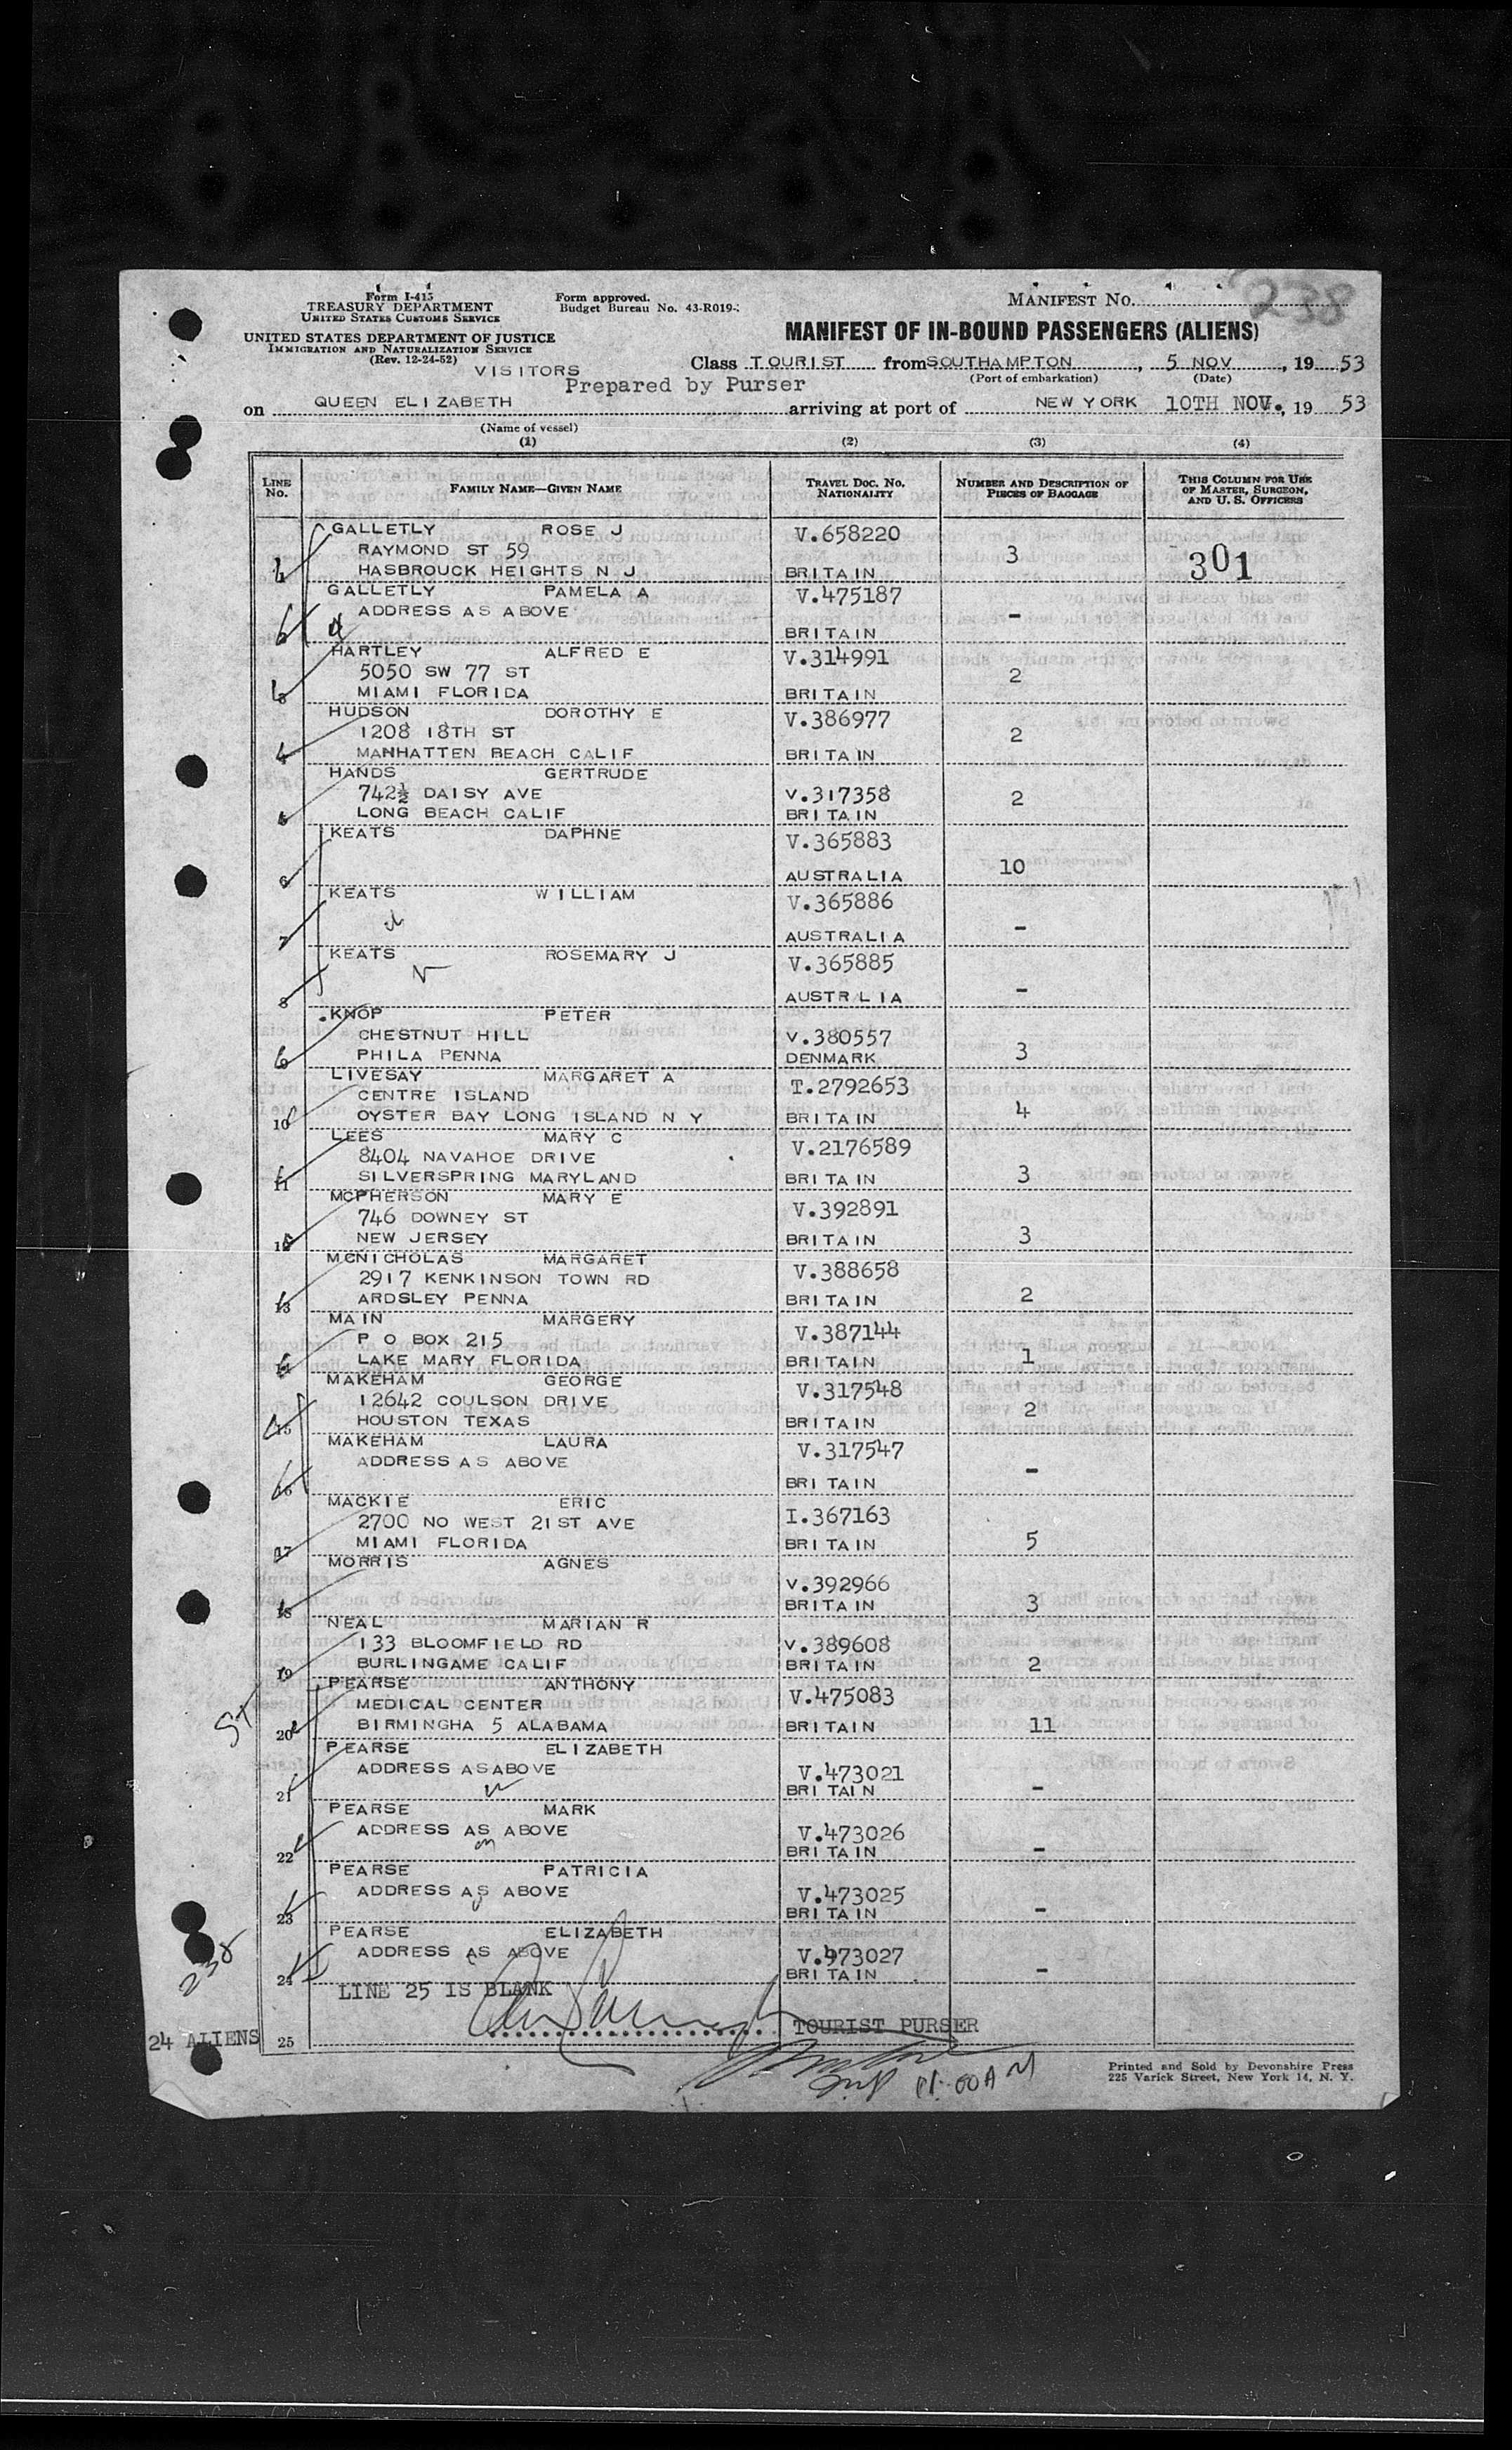 Form I-415
TREASURY DEPARTMENT
UNITED STATES CUSTOMS SERVICE
Form approved.
Budget Bureau No. 43-R019-
MANIFEST No. 238
UNITED STATES DEPARTMENT OF JUSTICE
IMMIGRATION AND NATURALIZATION SERVICE
(Rev. 12-24-52)
MANIFEST OF IN-BOUND PASSENGERS (ALIENS)
VISITORS
Class TOURIST from SOUTHAMPTON, 5 NOV, 19 53
(Port of embarkation) (Date)
Prepared by Purser
on QUEEN ELIZABETH arriving at port of NEW YORK 10TH NOV., 19 53
(Name of vessel)
(1) (2) (3) (4)
LINE No. FAMILY NAME—GIVEN NAME TRAVEL DOC. NO. NATIONALITY NUMBER AND DESCRIPTION OF PIECES OF BAGGAGE THIS COLUMN FOR USE OF MASTER, SURGEON, AND U. S. OFFICERS
GALLETLY ROSE J V.658220
RAYMOND ST 59 3 301
HASBROUCK HEIGHTS N J BRITAIN
GALLETLY PAMELA A V.475187
ADDRESS AS ABOVE -
BRITAIN
HARTLEY ALFRED E V.314991
5050 SW 77 ST 2
3 MIAMI FLORIDA BRITAIN
HUDSON DOROTHY E V.386977
1208 18TH ST 2
4 MANHATTEN BEACH CALIF BRITAIN
HANDS GERTRUDE
742½ DAISY AVE V.317358 2
LONG BEACH CALIF BRITAIN
KEATS DAPHNE V.365883
6 AUSTRALIA 10
KEATS WILLIAM V.365886
7 AUSTRALIA -
KEATS ROSEMARY J V.365885
8 AUSTR LIA -
KNOP PETER
CHESTNUT HILL V.380557
9 PHILA PENNA DENMARK 3
LIVESAY MARGARET A T.2792653
CENTRE ISLAND
10 OYSTER BAY LONG ISLAND N Y BRITAIN 4
LEES MARY C V.2176589
8404 NAVAHOE DRIVE
11 SILVERSPRING MARYLAND BRITAIN 3
MCPHERSON MARY E V.392891
746 DOWNEY ST
12 NEW JERSEY BRITAIN 3
MCNICHOLAS MARGARET V.388658
2917 KENKINSON TOWN RD
13 ARDSLEY PENNA BRITAIN 2
MAIN MARGERY V.387144
P O BOX 215
LAKE MARY FLORIDA BRITAIN 1
MAKEHAM GEORGE V.317548
12642 COULSON DRIVE 2
15 HOUSTON TEXAS BRITAIN
MAKEHAM LAURA V.317547
ADDRESS AS ABOVE -
16 BRITAIN
MACKIE ERIC I.367163
2700 NO WEST 21ST AVE
17 MIAMI FLORIDA BRITAIN 5
MORRIS AGNES
V.392966
18 BRITAIN 3
NEAL MARIAN R
133 BLOOMFIELD RD V.389608
19 BURLINGAME CALIF BRITAIN 2
PEARSE ANTHONY V.475083
MEDICAL CENTER
20 BIRMINGHA 5 ALABAMA BRITAIN 11
PEARSE ELIZABETH
ADDRESS ASABOVE V.473021
21 BRITAIN -
PEARSE MARK
ADDRESS AS ABOVE V.473026
22 BRITAIN -
PEARSE PATRICIA
ADDRESS AS ABOVE V.473025
23 BRITAIN -
PEARSE ELIZABETH
ADDRESS AS ABOVE V.973027
24 BRITAIN -
238
LINE 25 IS BLANK
24 ALIENS 25 TOURIST PURSER
11:00 AM
Printed and Sold by Devonshire Press
225 Varick Street, New York 14, N. Y.